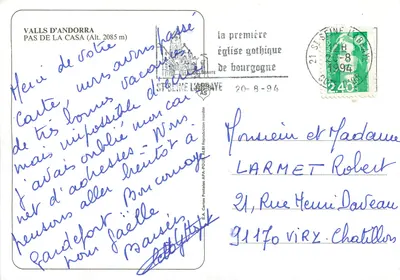 VALLS D'ANDORRA
PAS DE LA CASA (Alt. 2085 m)
Merci de votre
carte, nous avons passé
de très bonnes vacances
mais impossible d'écrire
j'avais oublié mon car
net d'adresses - Nous
pensons aller bientôt à
Bon courage
pour Joëlle
Baisers
la première
église gothique
de bourgogne
ST SEINE L'ABBAYE
20-8-94
21 ST SEINE L'ABBAYE
1994
2,40
Monsieur et Madame
LARMET Robert
21, Rue Henri Daveau
91170 VIRY-Chatillon